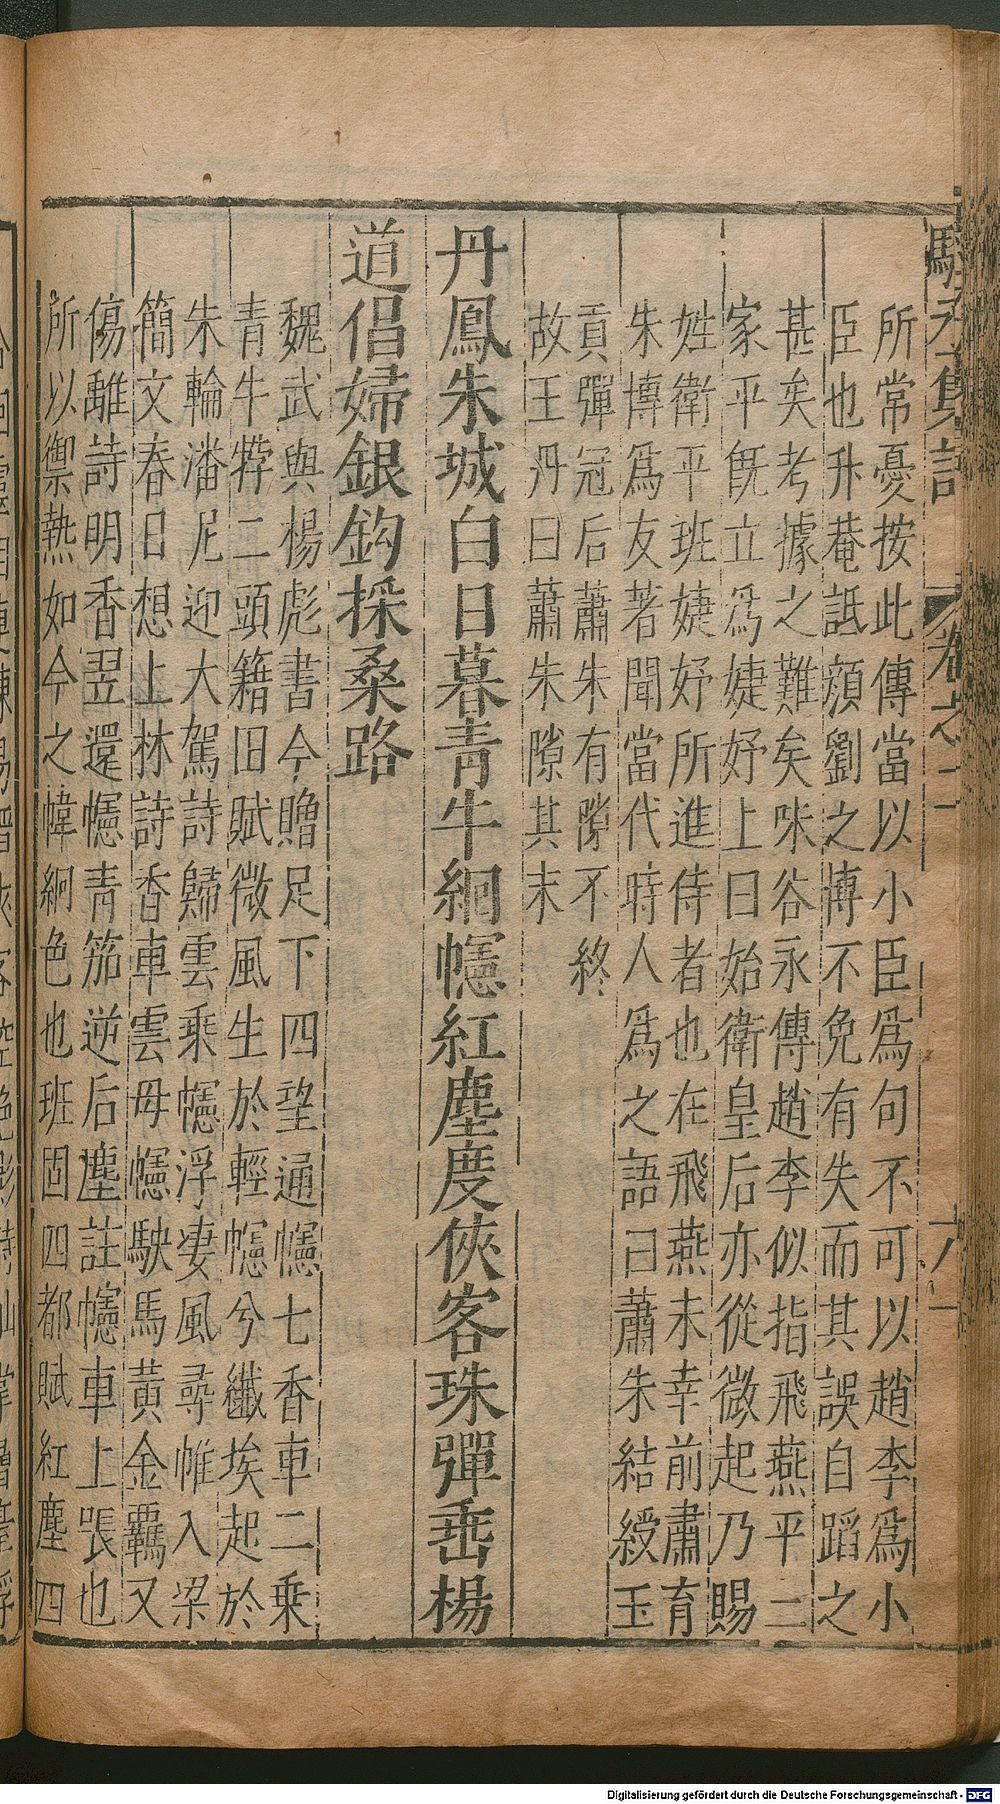 駱丞集註 卷之二
所常憂按此傳當以小臣為句不可以趙李為小
臣也升菴詆頗劉之博不免有失而其誤自蹈之
甚矣考據之難矣味谷永傳趙李似指飛燕平二
家平旣立爲婕妤上曰始衛皇后亦從微起乃賜
姓衛平班婕妤所進侍者也在飛燕未幸前肅育
朱博爲友著聞當代時人爲之語曰蕭朱結綬玉
貢彈冠后蕭朱有隙不終
故王丹曰蕭朱隙其末
丹鳳朱城白日暮青牛紺幰紅塵度俠客珠彈垂楊
道倡婦銀鈎採桑路
魏武與楊彪書今贈足下四望通幰七香車二乗
青牛牸二頭籍田賦微風生於輕幰兮纖埃起於
朱輪潘尼迎大駕詩歸雲乘幰浮凄風尋帷入梁
簡文春日想上林詩香車雲母幰駃馬黃金羈又
傷離詩明香翌還幰青笳逆后塵註幰車上張也
所以禦熱如今之幃紺色也班固四都賦紅塵四
Digitalisierung gefördert durch die Deutsche Forschungsgemeinschaft - DFG